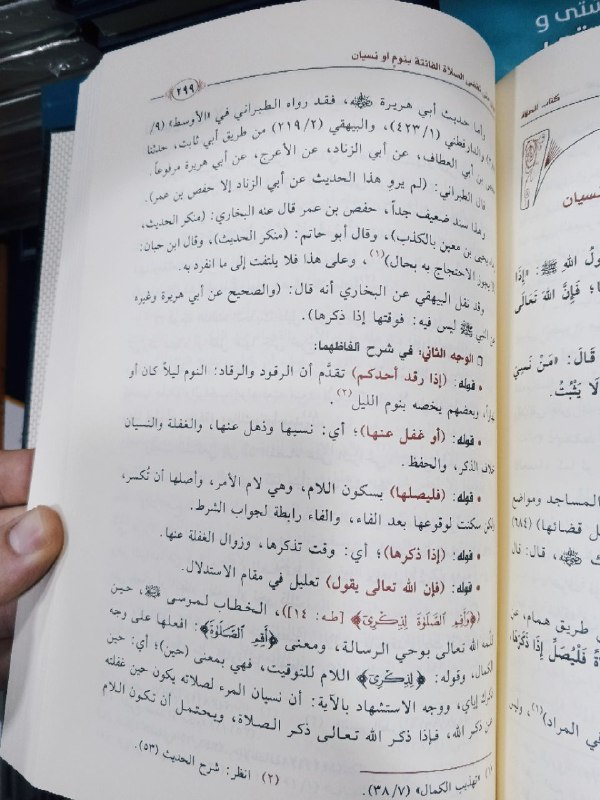 متى تقضى الصلاة الفائتة بنوم أو نسيان
٢٩٩
وأما حديث أبي هريرة ﷺ، فقد رواه الطبراني في «الأوسط» (٩/
والدارقطني (٤٢٣/١)، والبيهقي (٢١٩/٢) من طريق أبي ثابت، حدثنا
حفص بن أبي العطاف، عن أبي الزناد، عن الأعرج، عن أبي هريرة مرفوعاً.
قال الطبراني: (لم يرو هذا الحديث عن أبي الزناد إلا حفص بن عمر).
وهذا سند ضعيف جداً، حفص بن عمر قال عنه البخاري: (منكر الحديث،
رماه يحيى بن معين بالكذب)، وقال أبو حاتم: (منكر الحديث)، وقال ابن حبان:
(لا يجوز الاحتجاج به بحال)(١)، وعلى هذا فلا يلتفت إلى ما انفرد به.
وقد نقل البيهقي عن البخاري أنه قال: (والصحيح عن أبي هريرة وغيره
عن النبي ﷺ ليس فيه: فوقتها إذا ذكرها).
الوجه الثاني: في شرح ألفاظهما:
• قوله: (إذا رقد أحدكم) تقدَّم أن الرقود والرقاد: النوم ليلاً كان أو
نهاراً، وبعضهم يخصه بنوم الليل(٢).
• قوله: (أو غفل عنها)؛ أي: نسيها وذهل عنها، والغفلة والنسيان
خلاف الذكر، والحفظ.
• قوله: (فليصلها) بسكون اللام، وهي لام الأمر، وأصلها أن تُكسر،
ولكن سكنت لوقوعها بعد الفاء، والفاء رابطة لجواب الشرط.
• قوله: (إذا ذكرها)؛ أي: وقت تذكرها، وزوال الغفلة عنها.
• قوله: (فإن الله تعالى يقول) تعليل في مقام الاستدلال.
(﴿وَأَقِمِ الصَّلَوٰةَ لِذِكْرِيٓ﴾ [طه: ١٤])، الخطاب لموسى ﷺ، حين
كلمه الله تعالى بوحي الرسالة، ومعنى ﴿أَقِمِ الصَّلَوٰةَ﴾: افعلها على وجه
الكمال، وقوله: ﴿لِذِكْرِيٓ﴾ اللام للتوقيت، فهي بمعنى (حين)؛ أي: حين
ذكرك إياي، ووجه الاستشهاد بالآية: أن نسيان المرء لصلاته يكون حين غفلته
عن ذكر الله، فإذا ذكر الله تعالى ذكر الصلاة، ويحتمل أن تكون اللام
(١) «تهذيب الكمال» (٣٨/٧).
(٢) انظر: شرح الحديث (٥٣).
كتاب الصلاة
نسيان
ولُ اللهِ ﷺ: «إِذَا
فَإِنَّ اللهَ تَعَالَى
قَالَ: «مَنْ نَسِيَ
لَا يَثْبُتُ.
المساجد ومواضع
قضائها) (٦٨٤)
قال: قال
طريق همام، عن
فَلْيُصَلِّ إِذَا ذَكَرَهَا،
في المراد)(١)، وليس